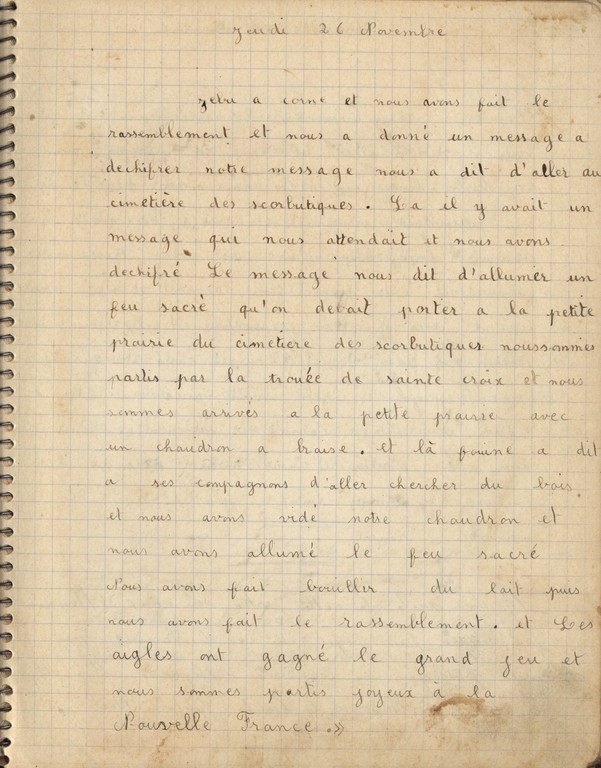 Jeudi 26 Novembre
Zebu a corné et nous avons fait le
rassemblement et nous a donné un message a
dechifrer notre message nous a dit d'aller au
cimetière des scorbutiques. La il y avait un
message qui nous attendait et nous avons
dechifré Le message nous dit d'allumer un
feu sacré qu'on devait porter a la petite
prairie du cimetiere des scorbutiques noussommes
partis par la trouée de sainte croix et nous
sommes arrivés a la petite prairie avec
un chaudron a braise. et là a dit
a ses compagnons d'aller chercher du bois
et nous avons vidé notre chaudron et
nous avons allumé le feu sacré
Nous avons fait bouillir du lait puis
nous avons fait le rassemblement. et Les
aigles ont gagné le grand jeu et
nous sommes partis joyeux à la
Nouvelle France.»